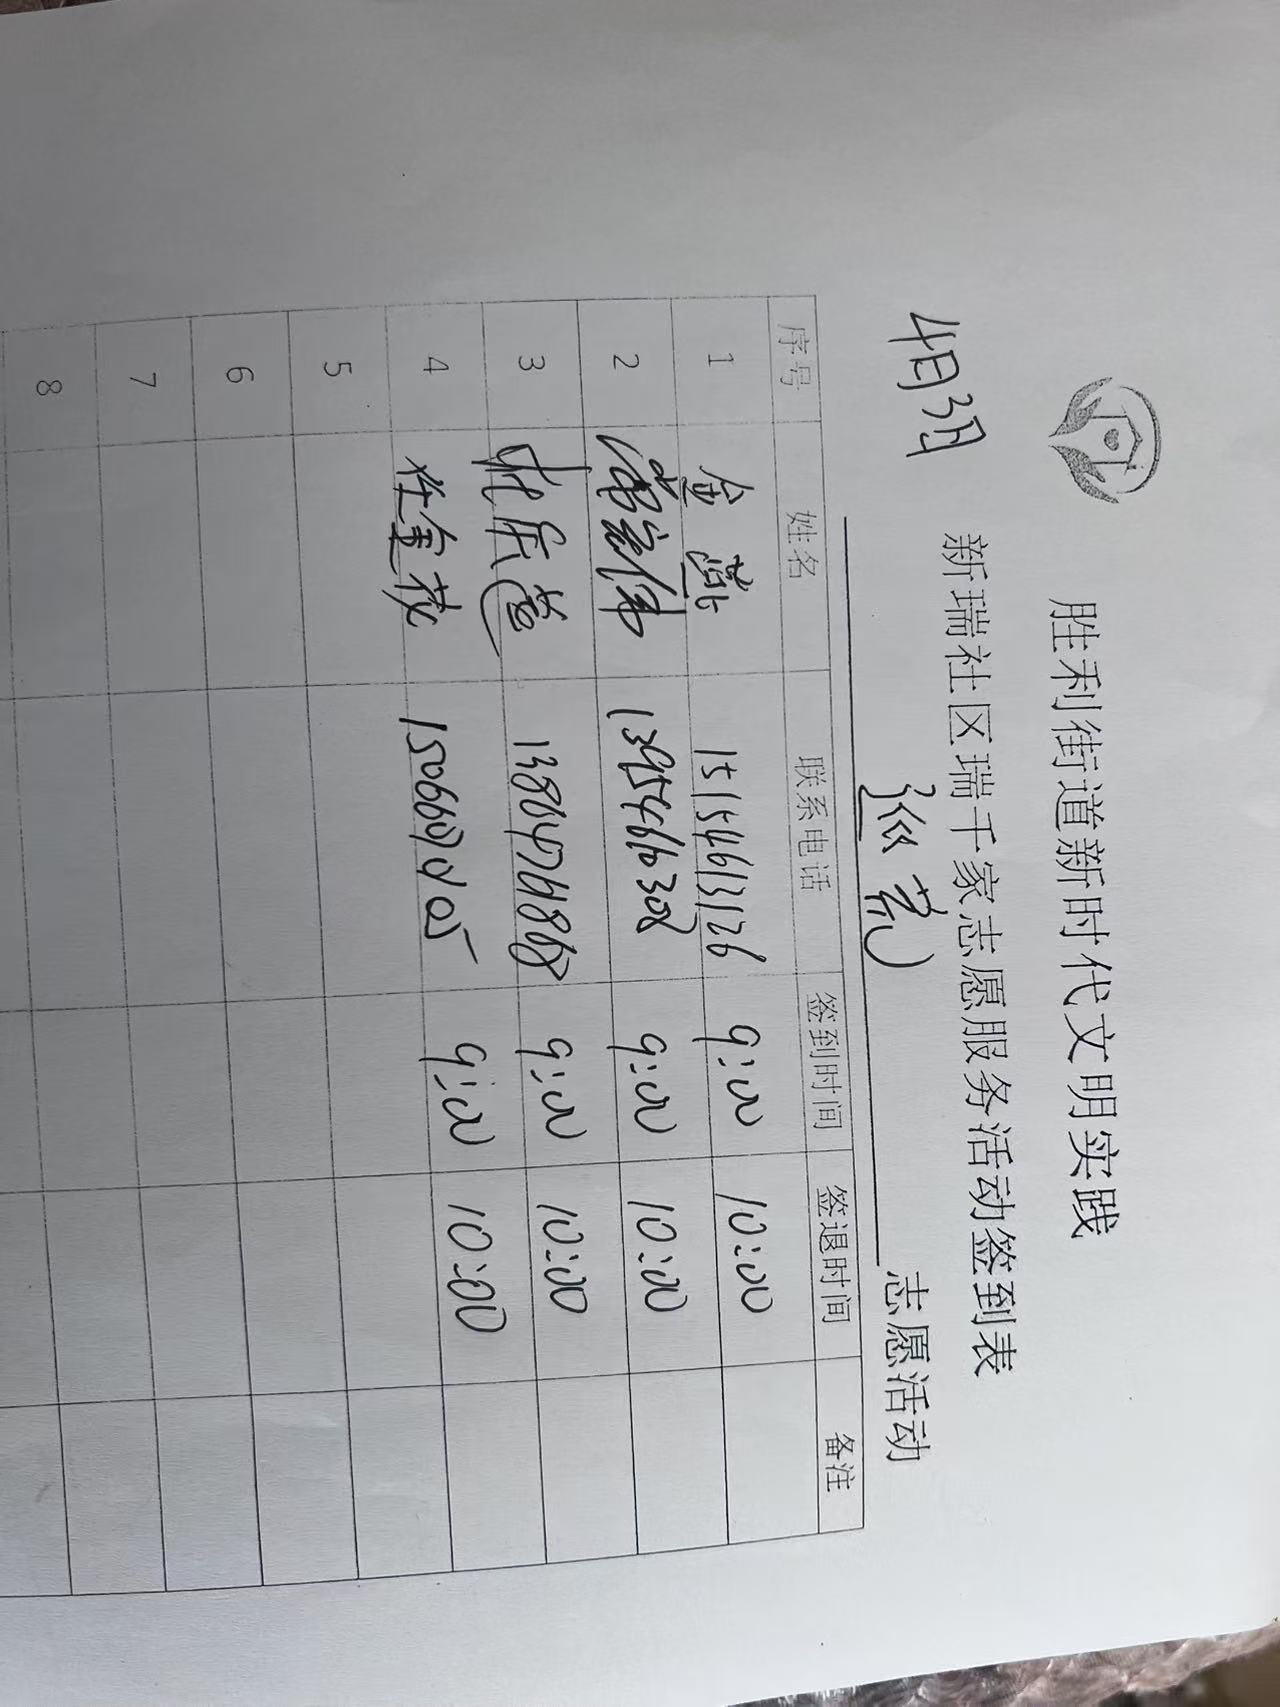 胜利街道新时代文明实践
新瑞社区瑞千家志愿服务活动签到表
4月3日 志愿活动
序号 姓名 联系电话 签到时间 签退时间 备注
1 金 15154613126 9:00 10:00
2 9:00 10:00
3 9:00 10:00
4 任金花 9:00 10:00
5
6
7
8